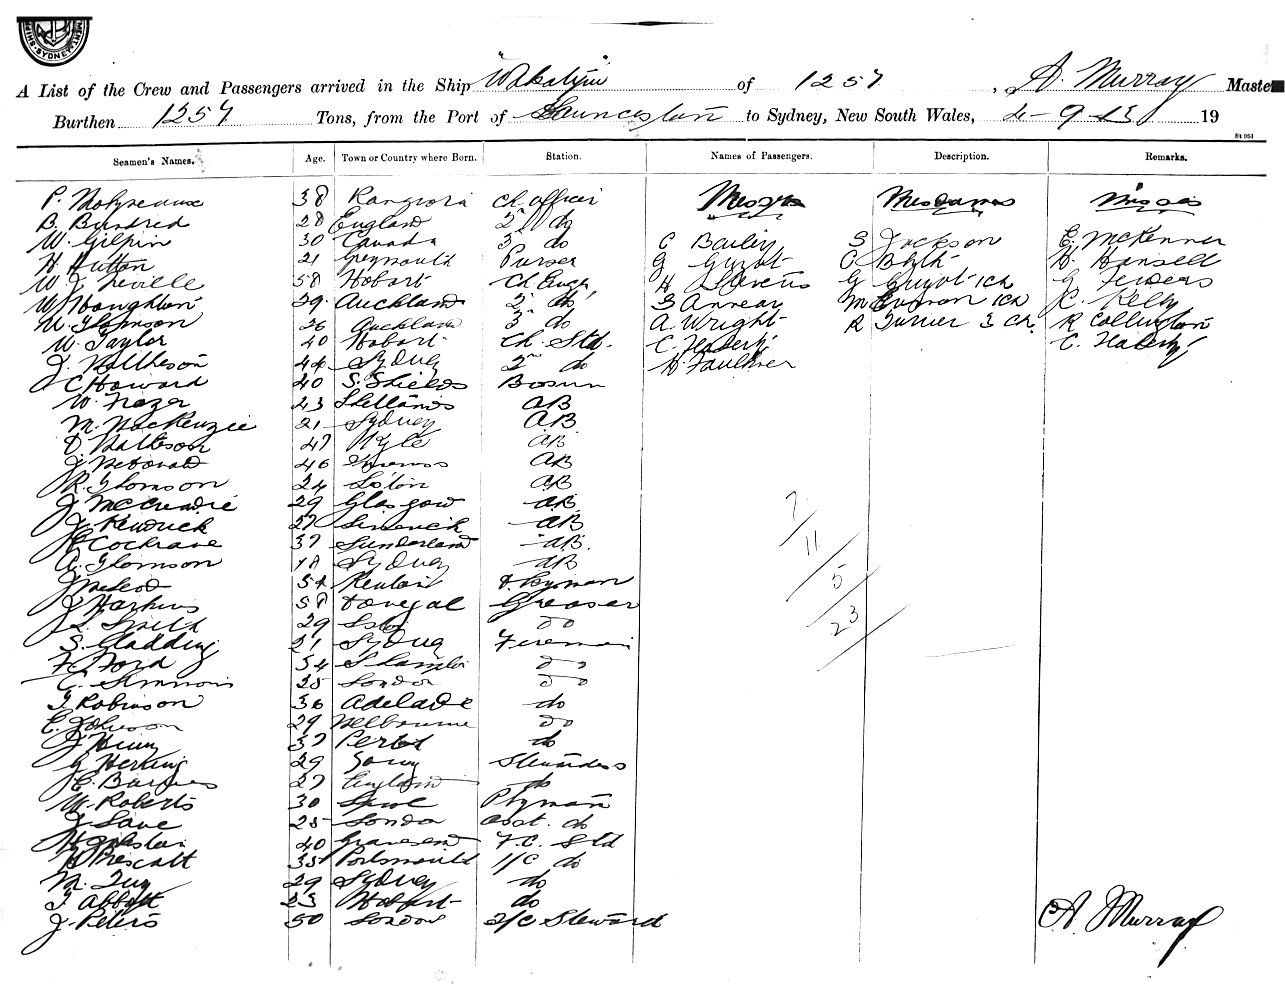 SYDNEY
A List of the Crew and Passengers arrived in the Ship "Wakatipu" of 1257, A. Murray Master
Burthen 1257 Tons, from the Port of Launceston to Sydney, New South Wales, 4-9-13 19
Seamen's Names. Age. Town or Country where Born. Station. Names of Passengers. Description. Remarks.
P. 38 Rangiora Ch. officer Messrs Mesdames Misses
B. Bundred 28 England 2 do
W. Gilpin 30 Canada 3 do C Bailey S Jackson E. McKenner
H Hutton 21 Greymouth Purser G Guyot C Blyth H. Hansell
W J Neville 58 Hobart Ch Engr, H Stevens G Guyot 1 Ch G
W Houghton 29 Auckland 2 do S Annear M 1 Ch C. Kelly
W. Thomson 26 Auckland 3 do A. Wright R Turner 3 Ch. R Collington
W. Taylor 40 Hobart Ch. Std. C.
J. Mathieson 44 Sydney 2 do H Faulkner
C Howard 40 S. Shields Bosun
W. Frazer 23 Shetlands AB
M. MacKenzie 21 Sydney AB
D Matheson 47 Kyle AB
J McDonald 46 AB
R. Thomson 24 AB
J McCreadie 29 Glasgow AB
J. Kendrick 27 Limerick AB
Cochrane 37 Sunderland AB
A. Thomson 18 Sydney AB
J McLeod 54 Renton
J Harkins 58 Donegal Greaser
29 do
S. Gladding 21 Sydney Fireman
F. Ford 34 do
C. Simmons 25 London do
T. Robinson 36 Adelaide do
E. Johnson 29 Melbourne do
J Henry 37 Perth do
G Herring 29 Stewardess
E. Barnes 27 England do
W. Roberts 30 Ptyman
J Lane 25 London asst. do
40 Gravesend F.C. Std
H Prescott 35 Portsmouth 1/C do
M. Guy 29 Sydney do
T Abbott 23 Hobart do
J. Peters 50 London 2/C Steward
7
11
5
23
A. Murray